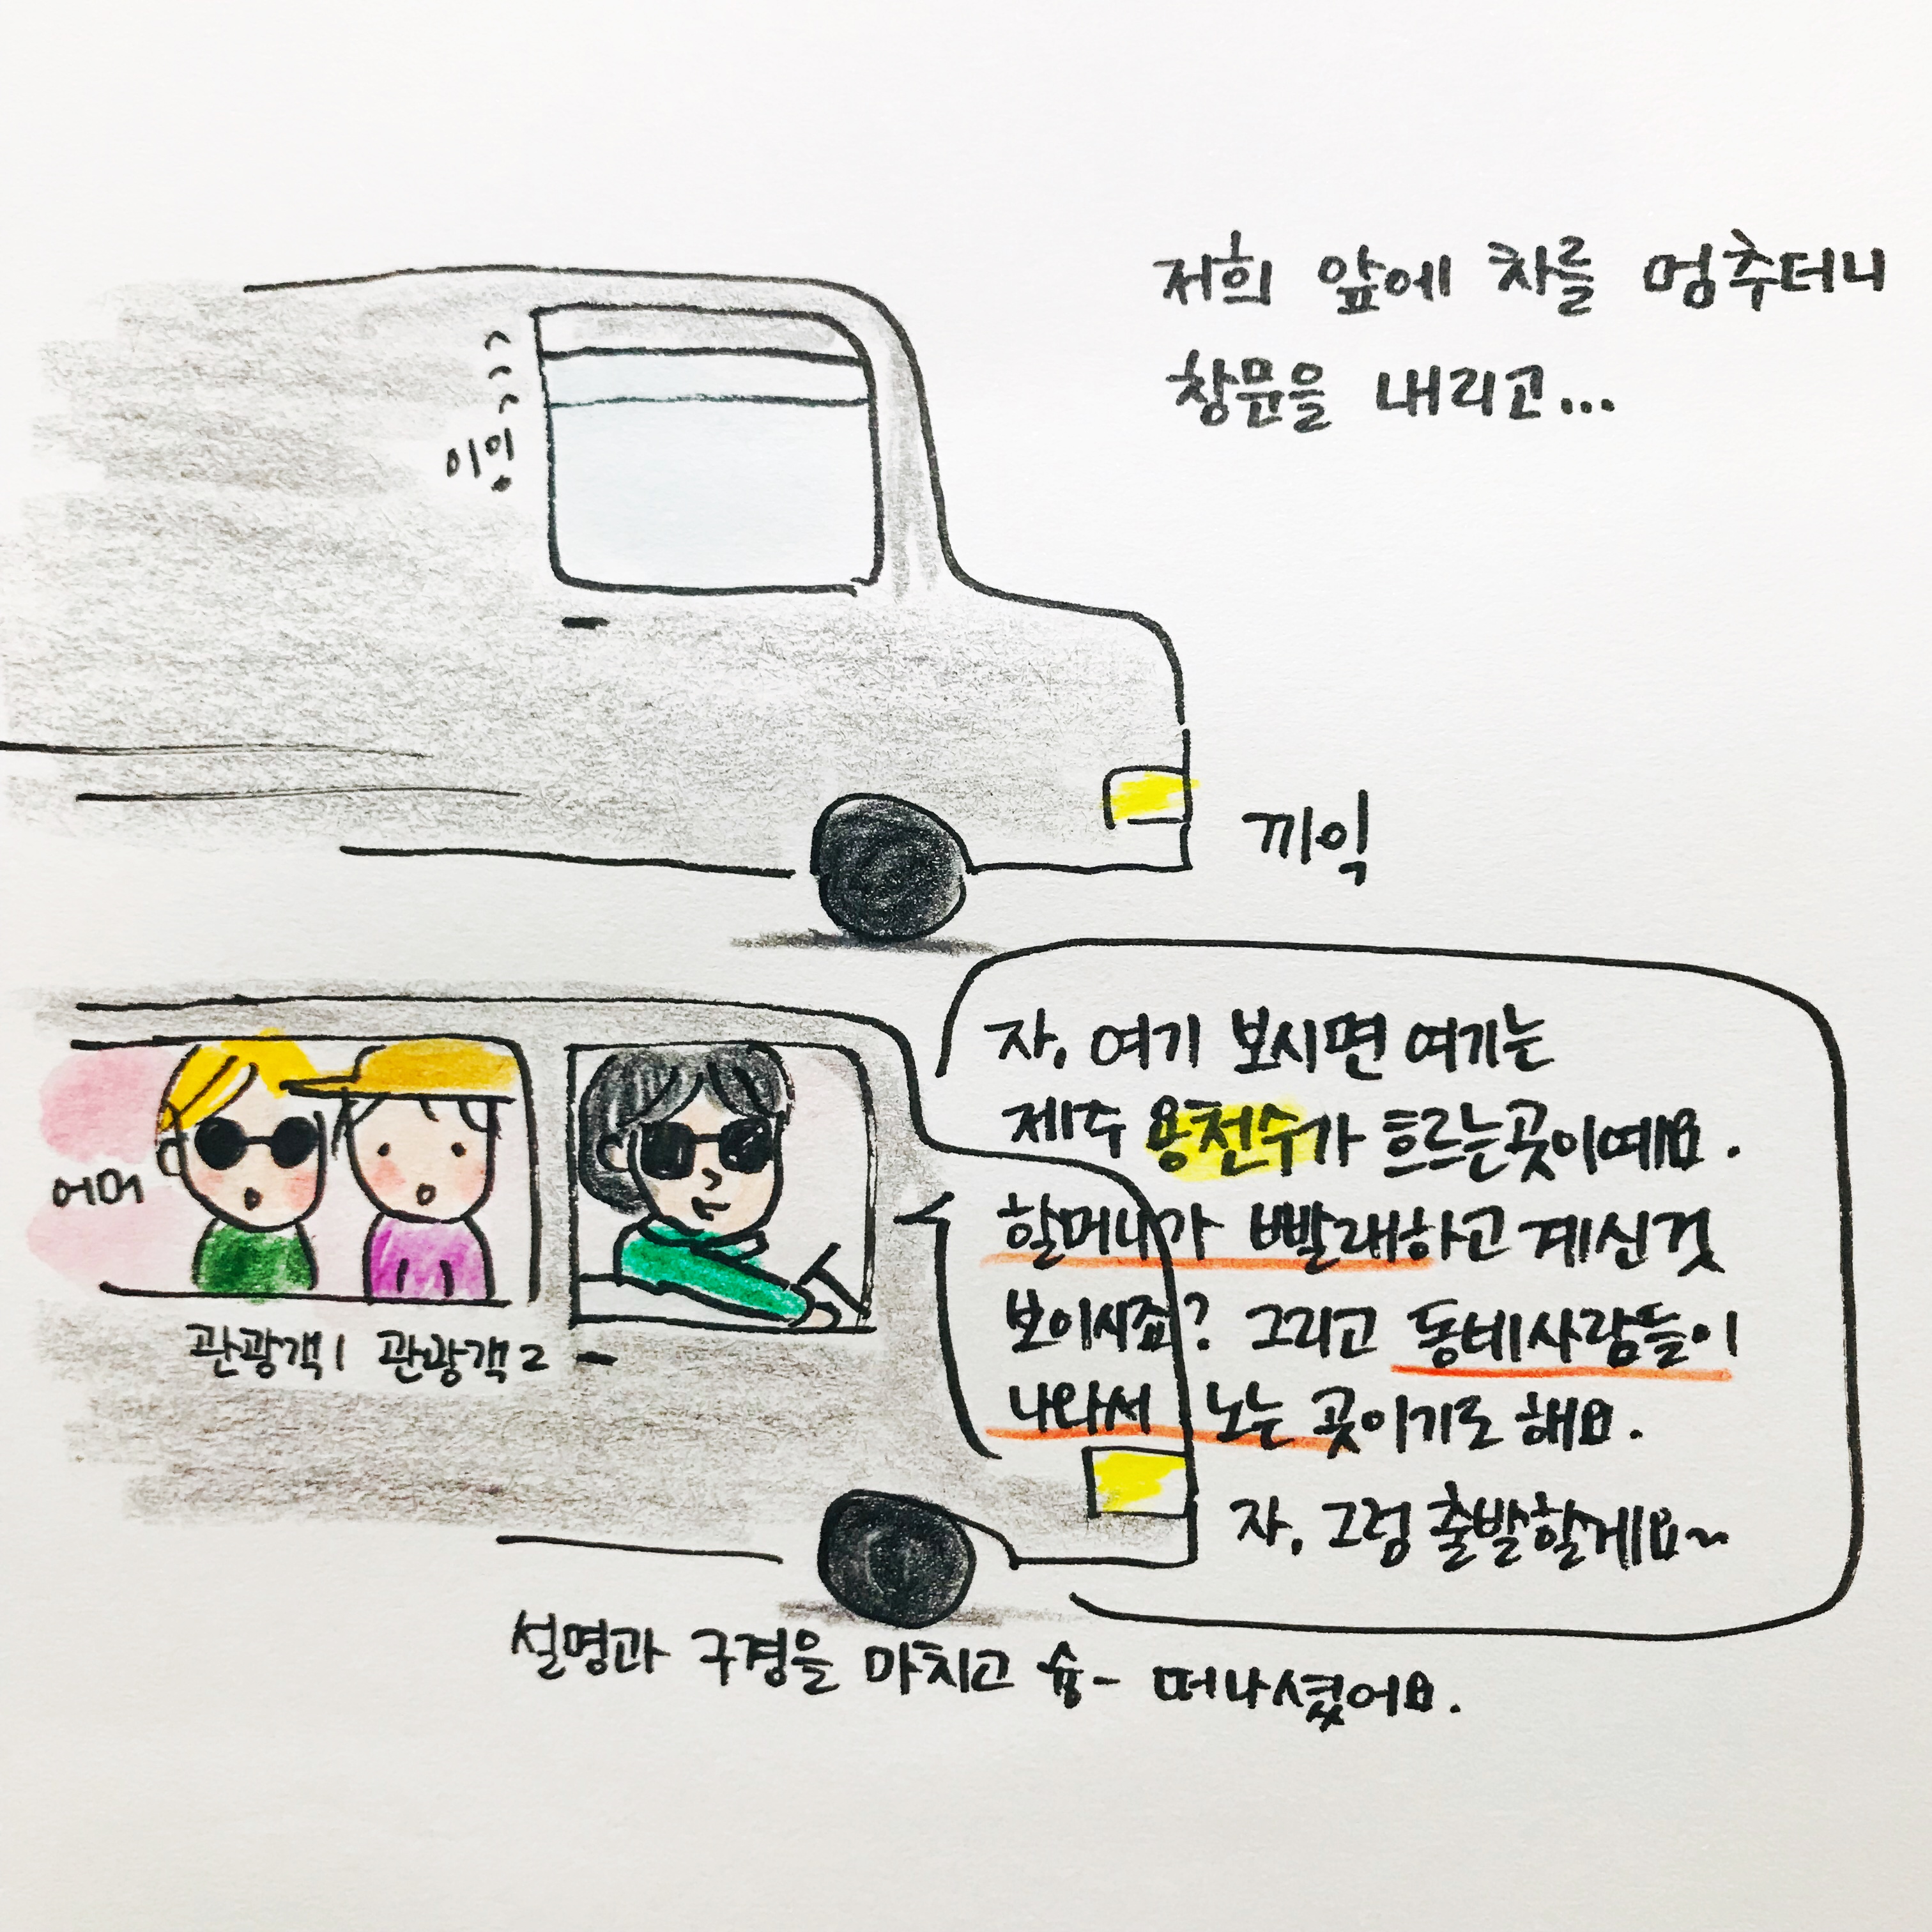 저희 앞에 차를 멈추더니
창문을 내리고...
끼익
자, 여기 보시면 여기는
제주 용천수가 흐르는곳이예요.
할머니가 빨래하고 계신것
보이시죠? 그리고 동네사람들이
나와서 노는 곳이기도 해요.
자, 그럼 출발할게요~
어머
관광객1 관광객2
설명과 구경을 마치고 슝- 떠나셨어요.